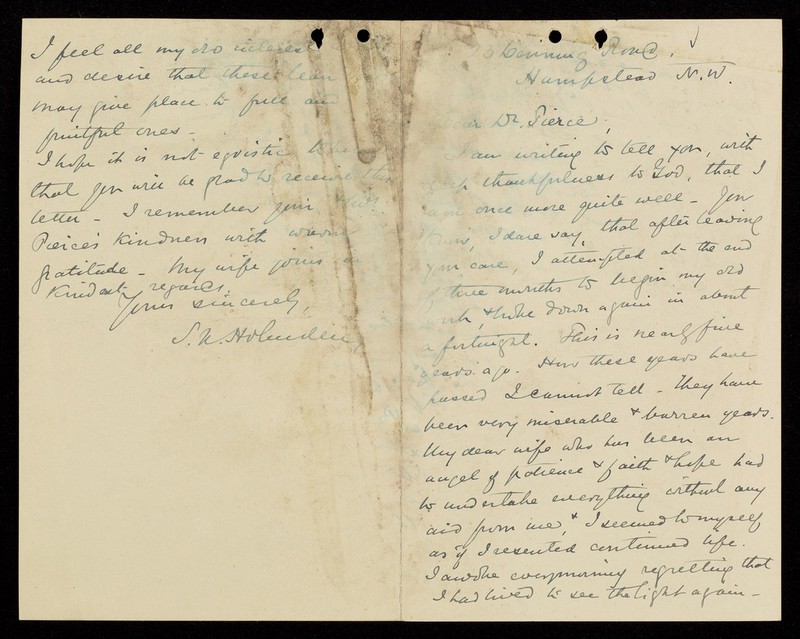 Road
Hampstead N.W.
Dr. Pierce,
I am writing to tell you, with
thankfulness to God, that I
am once more quite well - You
know, I dare say, that after leaving
your care, I attempted at the end
of three months to begin my old
work, & broke down again in about
a fortnight. This is nearly five
years ago. How these years have
passed I cannot tell - They have
been very miserable & barren years.
My dear wife who has been an
angel of patience & faith & hope had
to undertake everything without any
aid from me, & I seemed to myself
as if I resented continued life.
I awoke every morning regretting that
I had lived to see the light again -
I feel all my old interest
and desire that these lean
may give place to full and
fruitful ones -
I hope it is not egoistic
that you will be glad to receive this
letter - I remember your
Pierce's kindness with
gratitude - My wife joins in
kindest regards.
Yours sincerely,